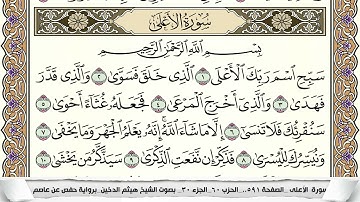 سُورَةُ الأَعْلَى
بِسْمِ اللَّهِ الرَّحْمَٰنِ الرَّحِيمِ
سَبِّحِ اسْمَ رَبِّكَ الْأَعْلَى ١ الَّذِي خَلَقَ فَسَوَّىٰ ٢ وَالَّذِي قَدَّرَ
فَهَدَىٰ ٣ وَالَّذِي أَخْرَجَ الْمَرْعَىٰ ٤ فَجَعَلَهُ غُثَاءً أَحْوَىٰ ٥
سَنُقْرِئُكَ فَلَا تَنسَىٰ ٦ إِلَّا مَا شَاءَ اللَّهُ إِنَّهُ يَعْلَمُ الْجَهْرَ وَمَا يَخْفَىٰ ٧
وَنُيَسِّرُكَ لِلْيُسْرَىٰ ٨ فَذَكِّرْ إِن نَّفَعَتِ الذِّكْرَىٰ ٩ سَيَذَّكَّرُ مَن يَخْشَىٰ ١٠
سورة الأعلى الصفحة ٥٩١.. الحزب ٦٠ الجزء ٣٠ بصوت الشيخ هيثم الدخين برواية حفص عن عاصم